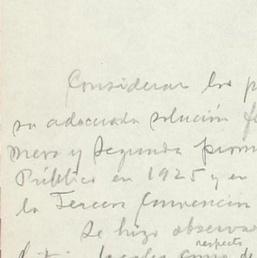 Considerar los p
su adecuada solución f
mera y Segunda
Público en 1925 y en
la Tercera Convención
Se hizo observa
respecto
locales como de